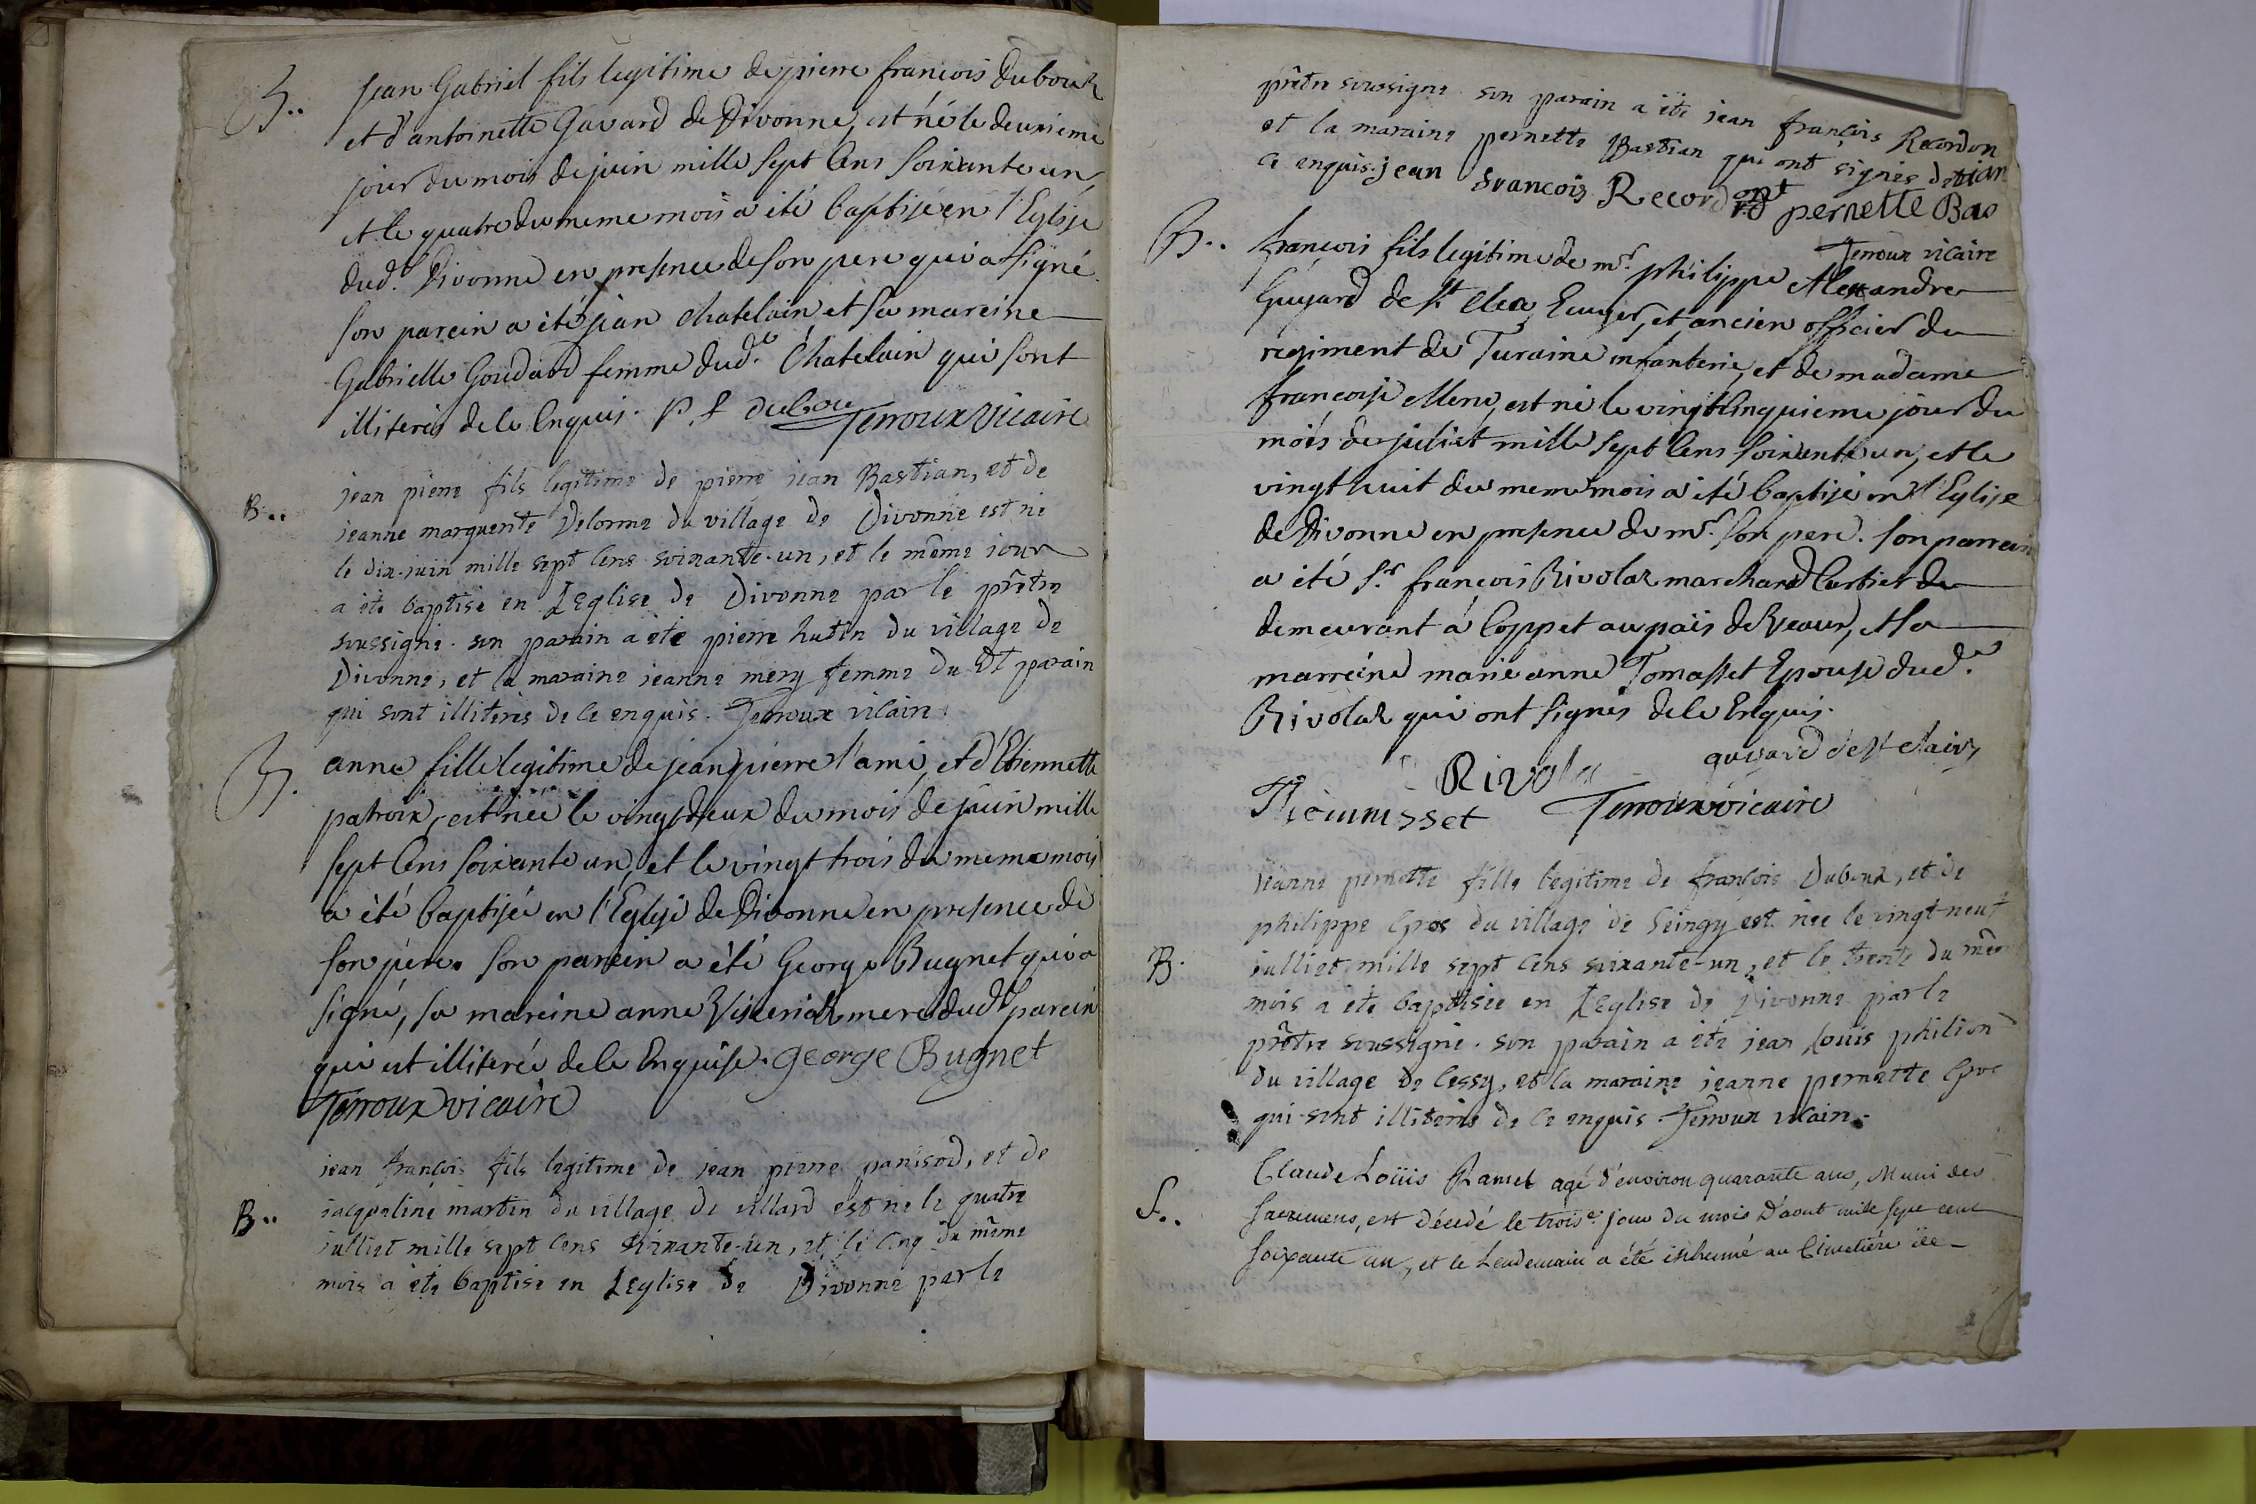 B.. Jean Gabriel fils legitime de pierre francois Duboux
et d'antoinette Gavard de Divonne, est né le deuxieme
jour du mois de juin mille sept Cens soixante un,
et le quatre du meme mois a été baptisé en l'Eglise
dud.t Divonne en presence de son pere qui a signé.
son parein a été jean Chatelain et sa mareine
Gabrielle Goudard femme dud.t Chatelain qui sont
illiterés de le Enquis. P. f dubou Terroux Vicaire
jean pierre fils legitime de pierre jean Bastian, et de
B.. jeanne marguerite Delorme du village de Divonne est né
le dix-juin mille sept cens soixante-un, et le même jour
a ete baptisé en L'Eglise de Divonne par le prêtre
soussigné. son parain a eté pierre hutin du village de
Divonne, et la maraine jeanne mery femme du dt parain
qui sont illiterés de ce enquis. Terroux vicaire.
B. anne fille legitime de jean pierre l'ami, et d'Etiennette
patroix, est née le vingt deux du mois de juin mille
sept Cens soixante un, et le vingt trois du meme mois
a été baptisée en l'Eglise de Divonne en presence de
son pere. son parein a été George Bugnet qui a
signé, sa mareine anne mere dudt parein
qui est illiterée de le Enquise. george Bugnet
Terroux vicaire
jean francois fils legitime de jean pierre panisod, et de
B.. jacqueline martin du village de villard est né le quatre
julliet mille sept cens soixante-un, et le cinq du même
mois a ete baptisé en L'eglise de Divonne par le
prêtre soussigné son parain a ete jean françois Recordon
et la maraine pernette Bastian qui ont signés de
ce enquis. jean francois Recordont pernette Bastian
Terroux vicaire
B.. françois fils legitime de mr. philippe Alexandre
Guyard de st Clair, Ecuyer, et ancien officier du
regiment de Turaine infanterie, et de madame
francoise est né le vingtcinquieme jour du
mois de juliet mille sept Cens soixante un, et le
vingt huit du meme mois a été baptisé en l'Eglise
de Divonne en presence de mr. son pere. son parrein
a été s.r françois Rivolaz marchand de
demeurant à Coppet au païs de Veaux, et sa
marreine marie anne Tomasset Epouse dud.t
Rivolaz qui ont signés de le Enquis.
Rivola guyard de st clair
Terroux vicaire
jeanne pernette fille legitime de françois Duboux, et de
philippe Gros du village de est née le vingt-neuf
B. julliet mille sept cens soixante-un, et le trente du même
mois a ete baptisée en L'Eglise de Divonne par le
prêtre soussigné. son parain a ete jean Louis philion
du village de Cessy, et la maraine jeanne pernette Gros
qui sont illiterés de ce enquis. Terroux vicaire.
Claude Loüis Ramel agé d'environ quarante ans, Muni des
S.. sacremens, est décedé le troise. jour du mois D'aout mille sept cent
soixante un, et le Lendemain a été inhumé au Cimetière de